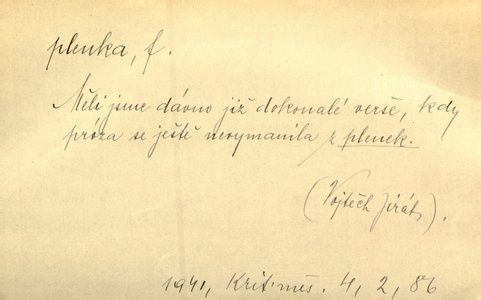 plenka, f.
Měli jsme dávno již dokonalé verše, kdy
próza se ještě nevymanila z plenek.
(Vojtěch Jirát).
1941, Krit. měs. 4, 2, 86